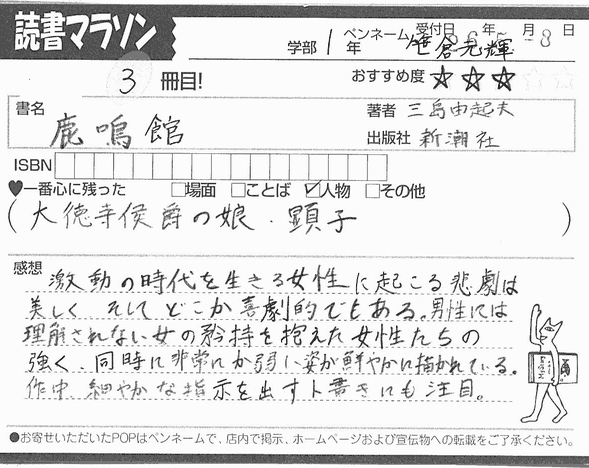 読書マラソン
学部 1年 ペンネーム 笹倉光輝 受付日 6年 月 8日
3冊目! おすすめ度 ☆☆☆
書名 鹿鳴館 著者 三島由起夫
出版社 新潮社
ISBN
♥一番心に残った □場面 □ことば ☑人物 □その他
(大徳寺侯爵の娘・顕子)
感想
激動の時代を生きる女性に起こる悲劇は
美しく そして どこか喜劇的でもある。男性には
理解されない女の矜持を抱えた女性たちの
強く、同時に非常にか弱い姿が鮮やかに描かれている。
作中 細やかな指示を出すト書きにも注目。
●お寄せいただいたPOPはペンネームで、店内で掲示、ホームページおよび宣伝物への転載をご了承ください。